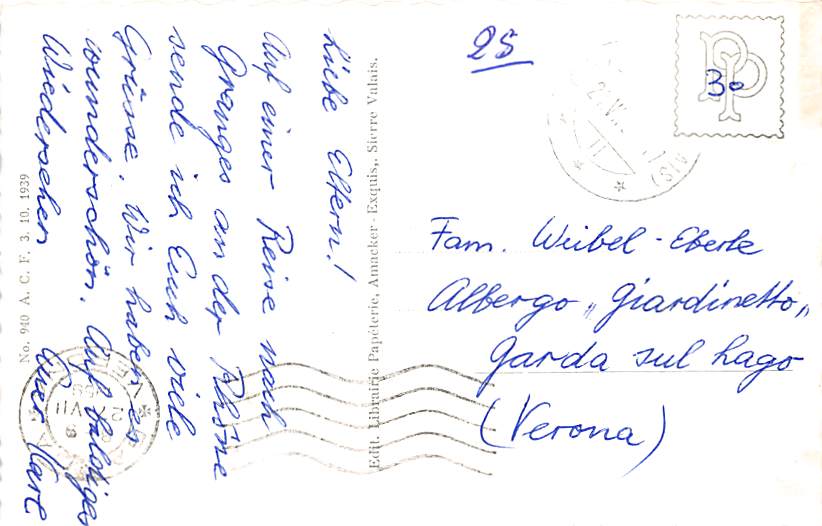 Liebe Eltern!
Auf einer Reise nach
Granges an der Rhône
sende ich Euch viele
Grüsse. Wir haben es
wunderschön. Auf baldiges
Wiedersehen
Euer Karl
No. 940 A. C. F. 3. 10. 1939
Edit. Librairie Papéterie, Amacker-Exquis,. Sierre Valais.
25
PP
30
Fam. Weibel-Eberle
Albergo „Giardinetto„
Garda sul Lago
(Verona)